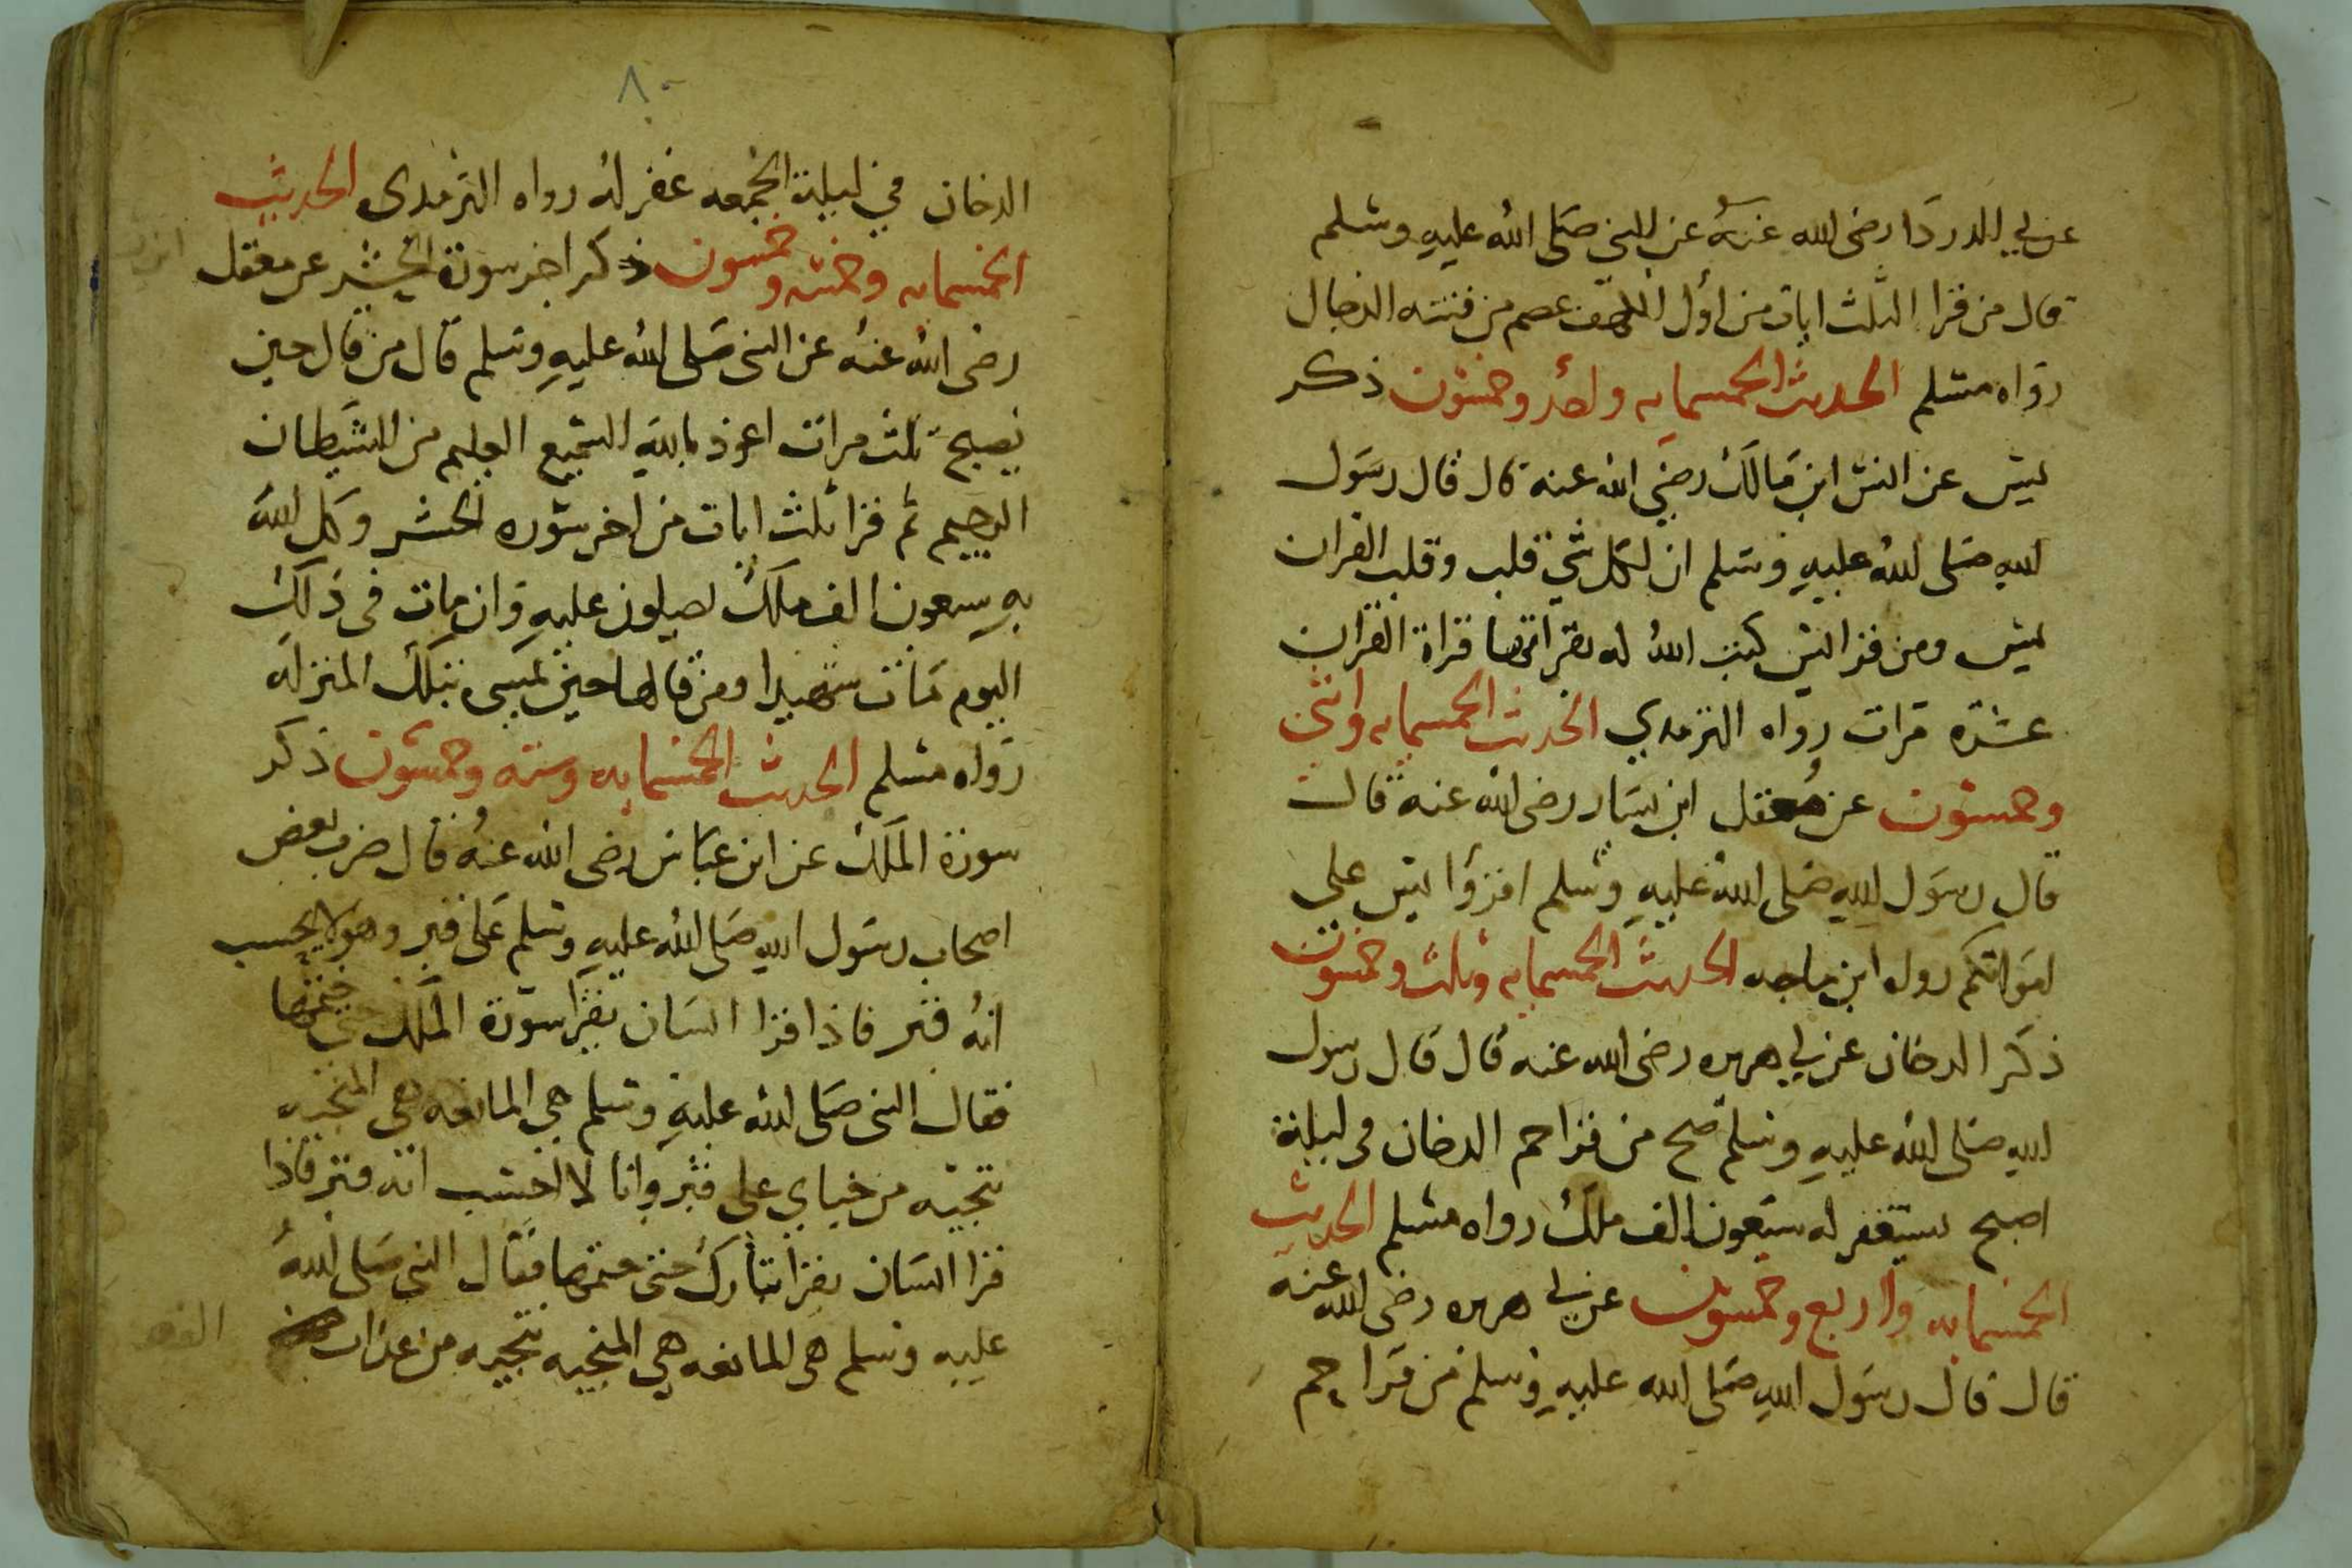 عن ابي الدردا رضى الله عنه عن النبي صَلى الله عليهِ وسَلم
قال من قرا الثلث ايات من اول الكهف عصم من فتنته الدجال
رواه مسلم الحديث الخمسمايه واحد وخمسون ذكر
يس عن انس ابن مَالك رضي الله عنه قال قال رسَول
اللهِ صَلى اللهُ عليهِ وسَلم ان لكل شي قلب وقلب القران
يس ومن قرا يس كتب اللهُ له بقراتها قراة القران
عشرة مرات رواه الترمدي الحديث الخمسمايه واثنى
وخمسون عن معقل ابن يسَار رضى الله عنه قال
قال رسَول اللهِ صَلى اللهُ عليهِ وسَلم اقرؤا يس على
امَواتكم رواه ابن ماجه الحديث الخمسمايه وثلث وخمسون
ذكر الدخان عن ابي هريره رضى الله عنه قال قال رسول
اللهِ صَلى اللهُ عليهِ وسَلم صح من قرا حم الدخان في ليلة
اصبح يستغفر له سبَعون الف ملك رواه مسلم الحديث
الخمسمايه واربع وخمسون عن ابي هريره رضى الله عنه
قال قال رسَول اللهِ صَلى الله عليهِ وسلم من قَرا حم
٨٠
الدخان في ليلة الجمعه غفر له رواه الترمدى الحديث
الخمسمايه وخمسه وخمسون ذكر اخر سورة الحشر عن معقل
رضى الله عنهُ عن النبى صَلى اللهُ عليهِ وسَلم قال من قال حين
يصبح ثلث مرات اعوذ باللهِ السَميع العليم من الشيطان
الرجيم ثم قرا ثلث ايات من اخر سَوره الحشر وكل اللهُ
بهِ سبعون الف ملك يصلون عليهِ وان مات في ذلك
اليوم مَات شهيدا ومن قالها حين يمسى بتلك المنزله
رواه مسلم الحديث الخمسمايه وسته وخمسون ذكر
سورة الملك عن ابن عبَاس رضى الله عنهُ قال ضرب بعض
اصحاب رسَول اللهِ صَلى اللهُ عليهِ وسَلم عَلى قبر وهو لا يحسب
انهُ قبر فاذا قرا انسَان يقرا سَورة الملك حتى ختمها
فقال النبى صَلى اللهُ عليهِ وسَلم هي المانعه هي المنجيه
تنجيه من خباي على قبر وانا لا احسب انه قبر فاذا
قرا انسَان يقرا تبارك حتى ختمها فقال النبي صَلى اللهُ
عليهِ وسلم هى المانعه هي المنجيه تنجيه من عذاب